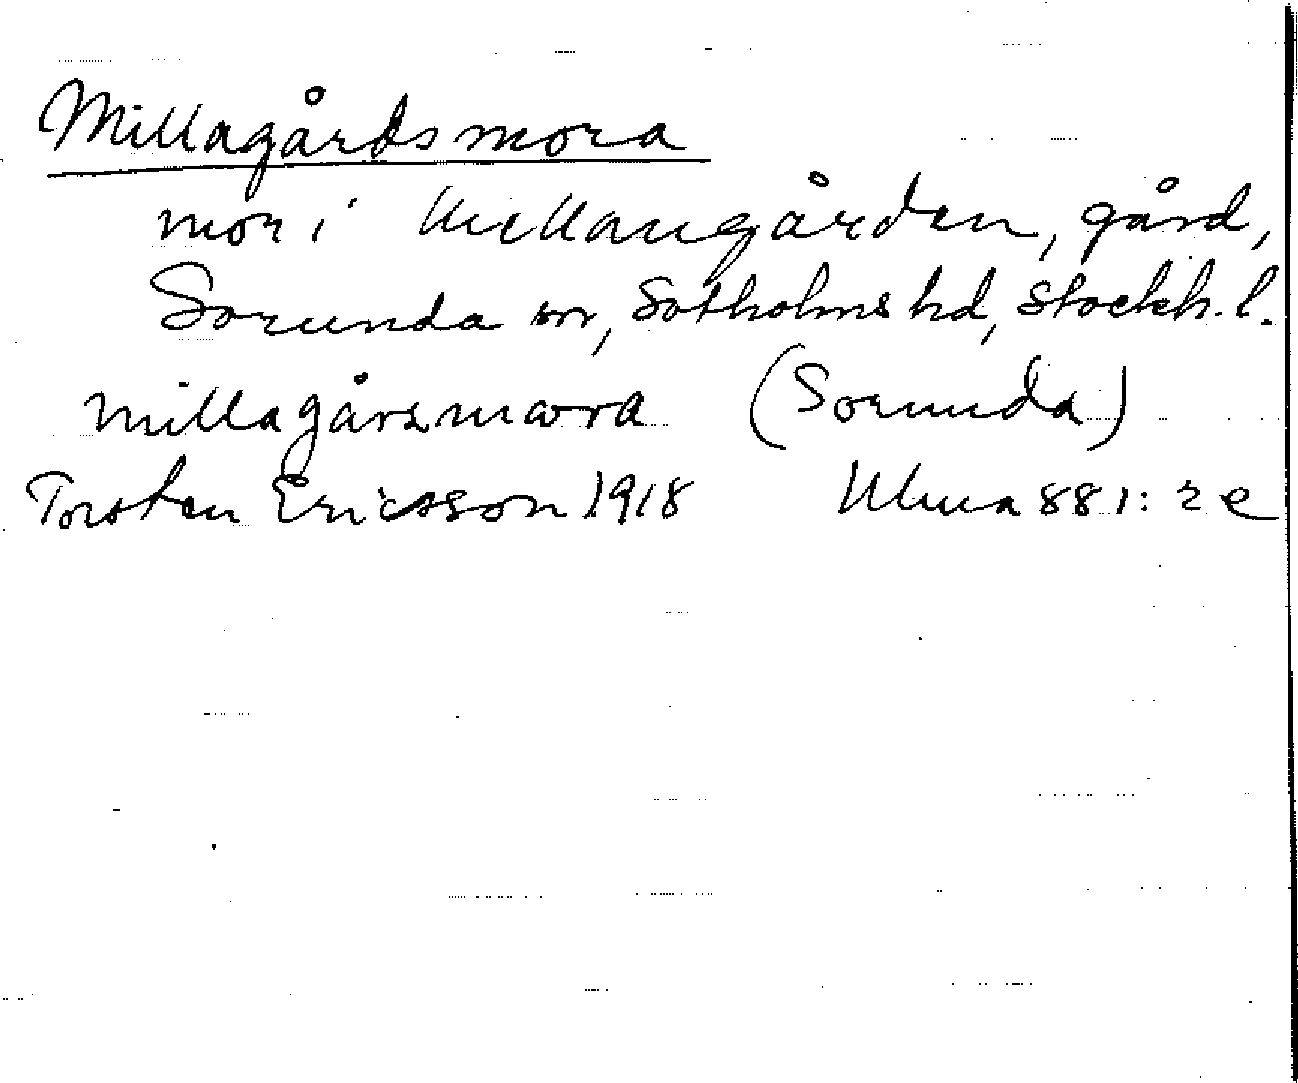 Millagårdsmora
mor i Mellangården, gård,
Sorunda sn, Sotholms hd, Stockh. l.
millagårsmora (Sorunda)
Torsten Ericsson 1918 Ulma 881: 2 e